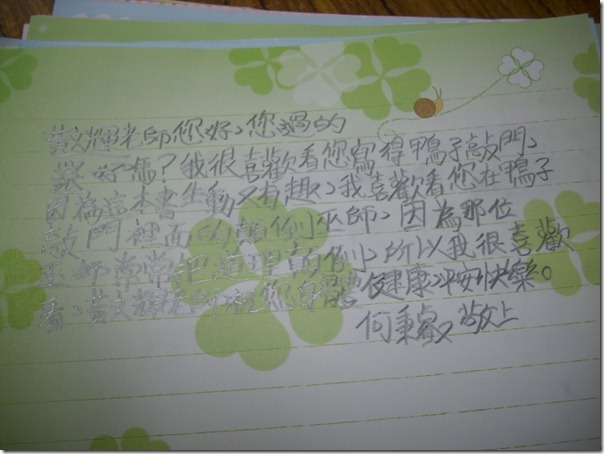 黃文輝老師您好、您過的
好嗎？我很喜歡看您寫得鴨子敲門、
因為這本書生動又有趣、我喜歡看您在鴨子
敲門裡面的顛倒巫師、因為那位
巫師常常把道理顛倒、所以我很喜歡
看、黃文輝老師祝您身體健康、平安快樂。
何秉叡 敬上